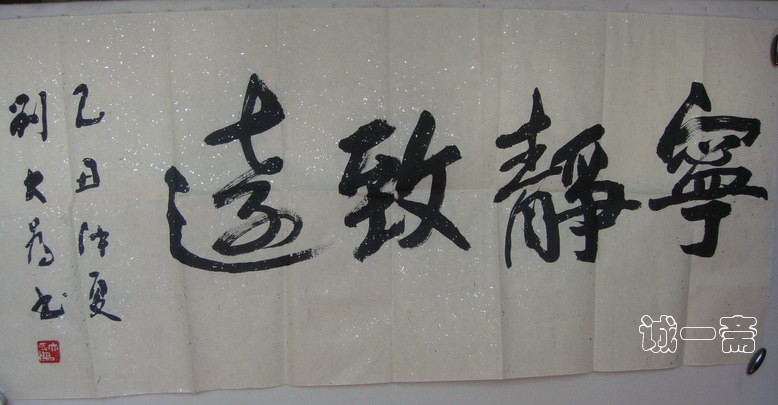 寧靜致遠
乙丑仲夏
刘大為书
诚一斋